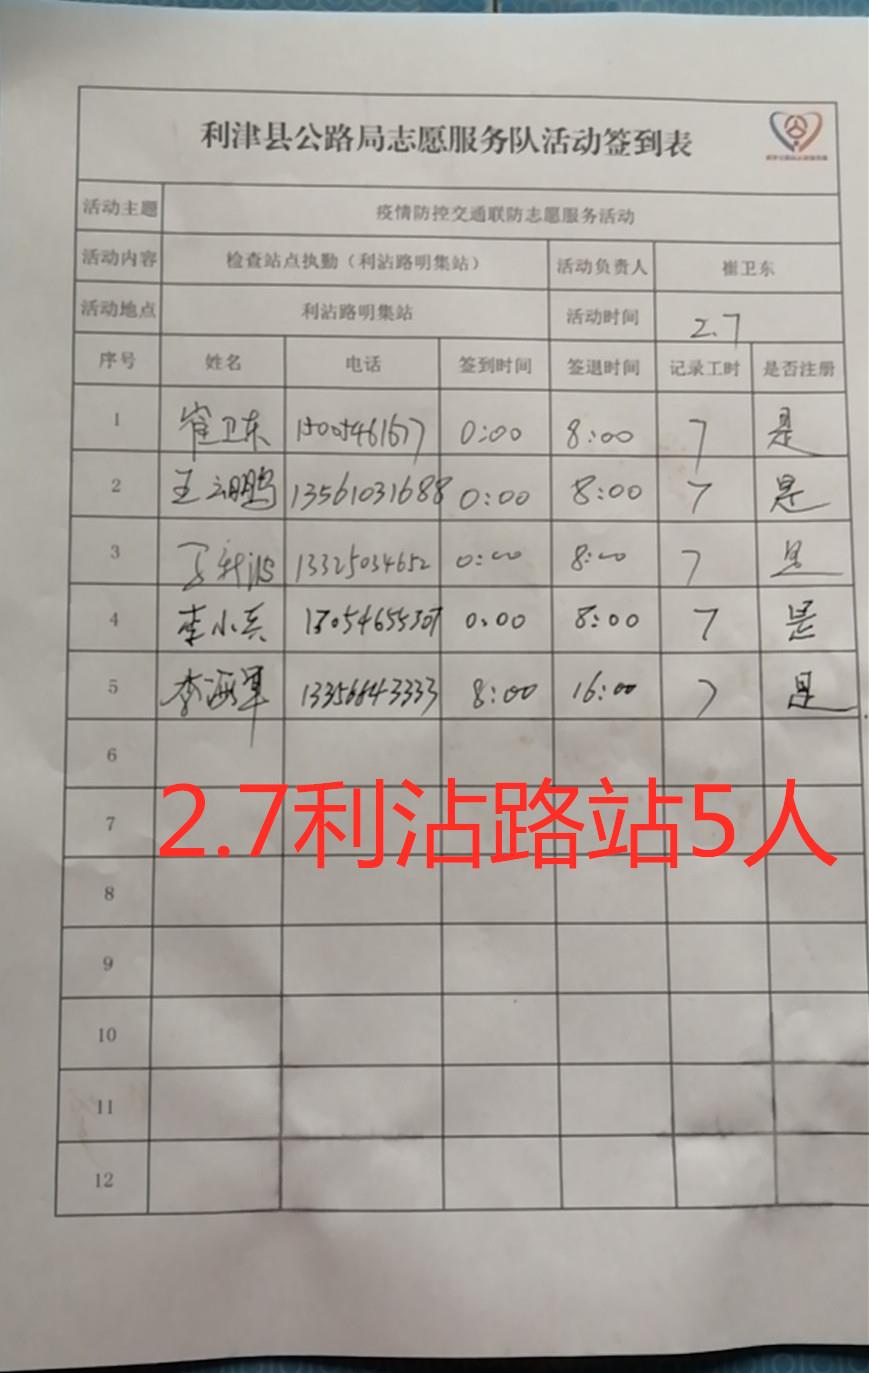 利津县公路局志愿服务队活动签到表
活动主题 疫情防控交通联防志愿服务活动
活动内容 检查站点执勤（利沾路明集站） 活动负责人 崔卫东
活动地点 利沾路明集站 活动时间 2.7
序号 姓名 电话 签到时间 签退时间 记录工时 是否注册
1 崔卫东 15005461677 0:00 8:00 7 是
2 王云鹏 13561031688 0:00 8:00 7 是
3 13325034652 0:00 8:00 7 是
4 李小兵 0:00 8:00 7 是
5 李海军 13356643333 8:00 16:00 7 是
6
2.7利沾路站5人
7
8
9
10
11
12